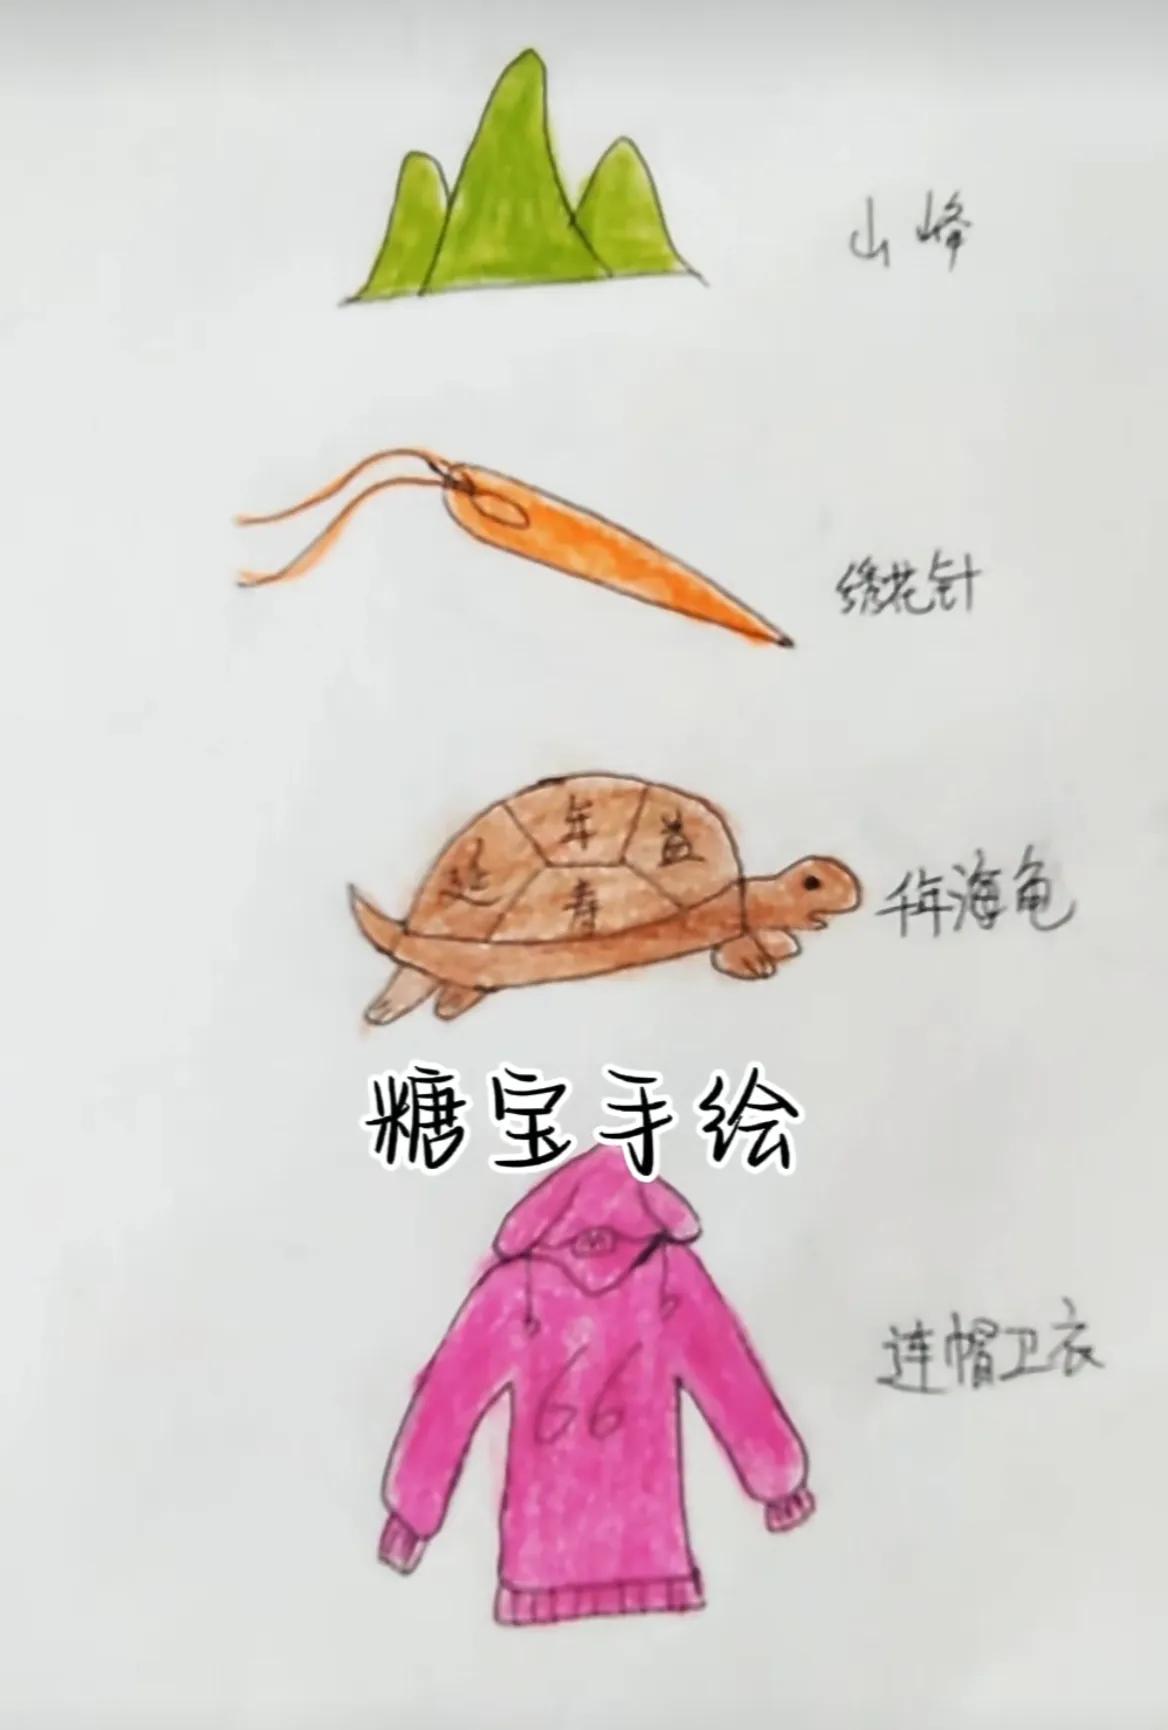 山峰
绣花针
年
延 益
寿
千年海龟
糖宝手绘
66
连帽卫衣